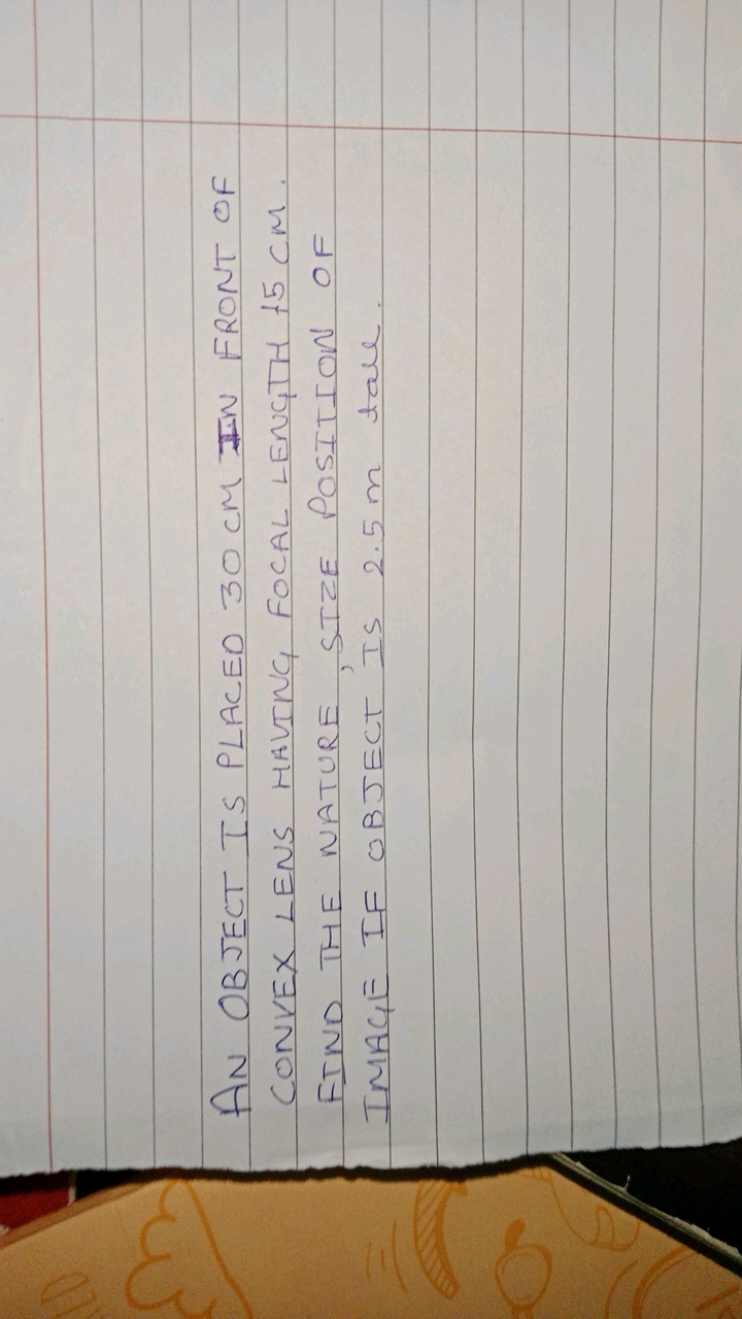 AN OBJECT IS PLACED 30 CM IN FRONT OF
CONVEX LENS HAVING FOCAL LENGTH 15 CM.
FIND THE NATURE, SIZE POSITION OF
IMAGE IF OBJECT IS 2.5 m tall.